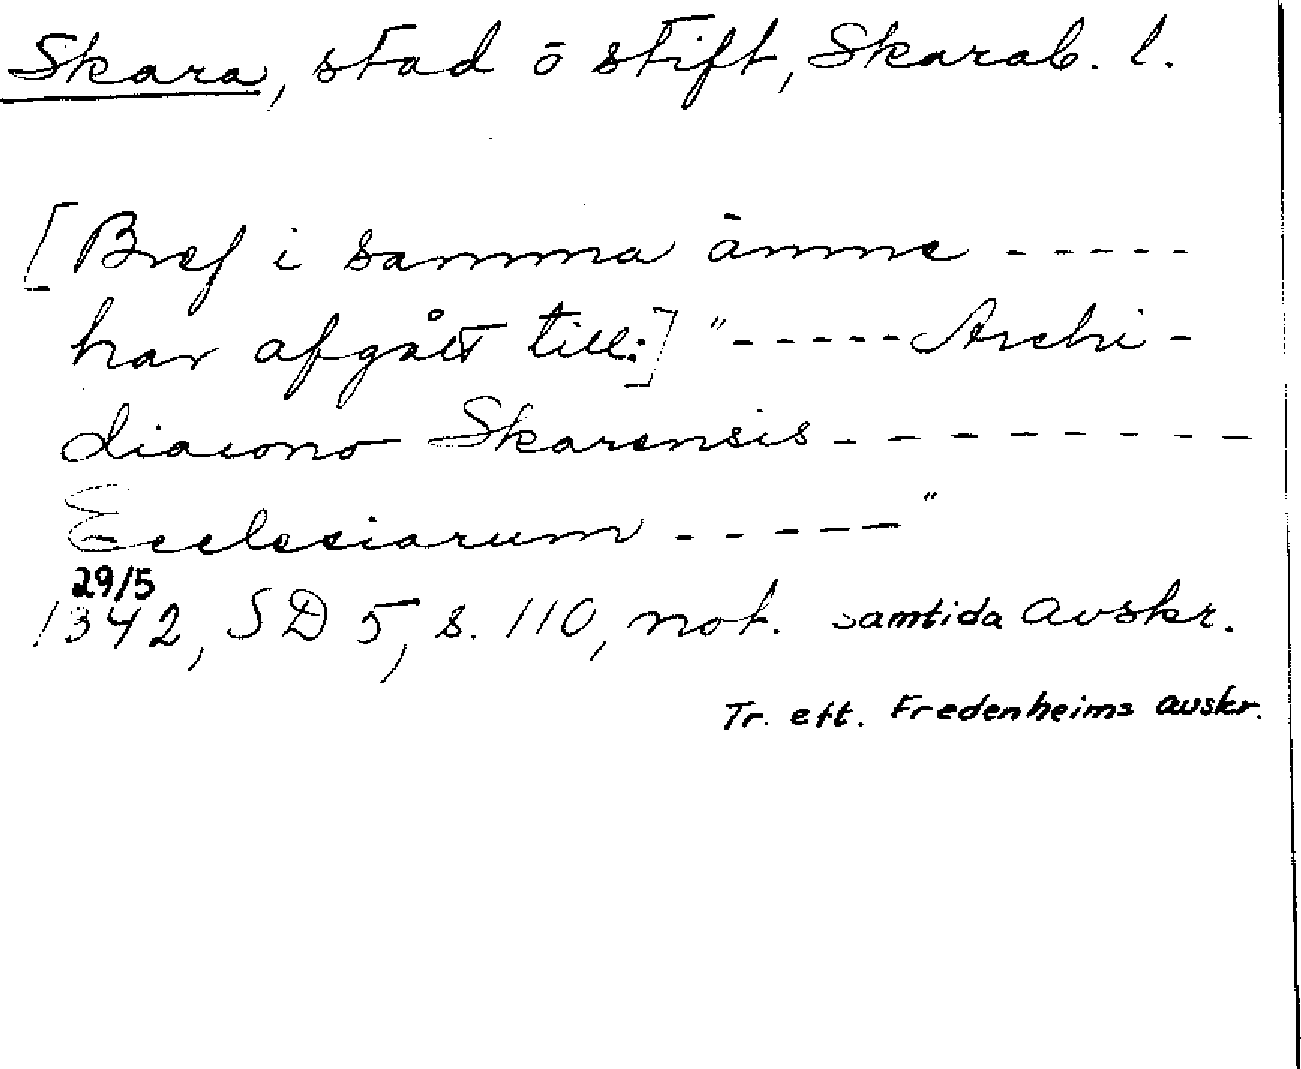 Skara, stad ō stift, Skarab. l.
[Bref i samma ämne - - - - -
har afgått till:] "- - - - - Archi-
diacono Skarensis - - - - - - - -
Ecclesiarum - - - - - "
29/5
1342, SD 5, s. 110, not. samtida avskr.
Tr. eft. Fredenheims avskr.